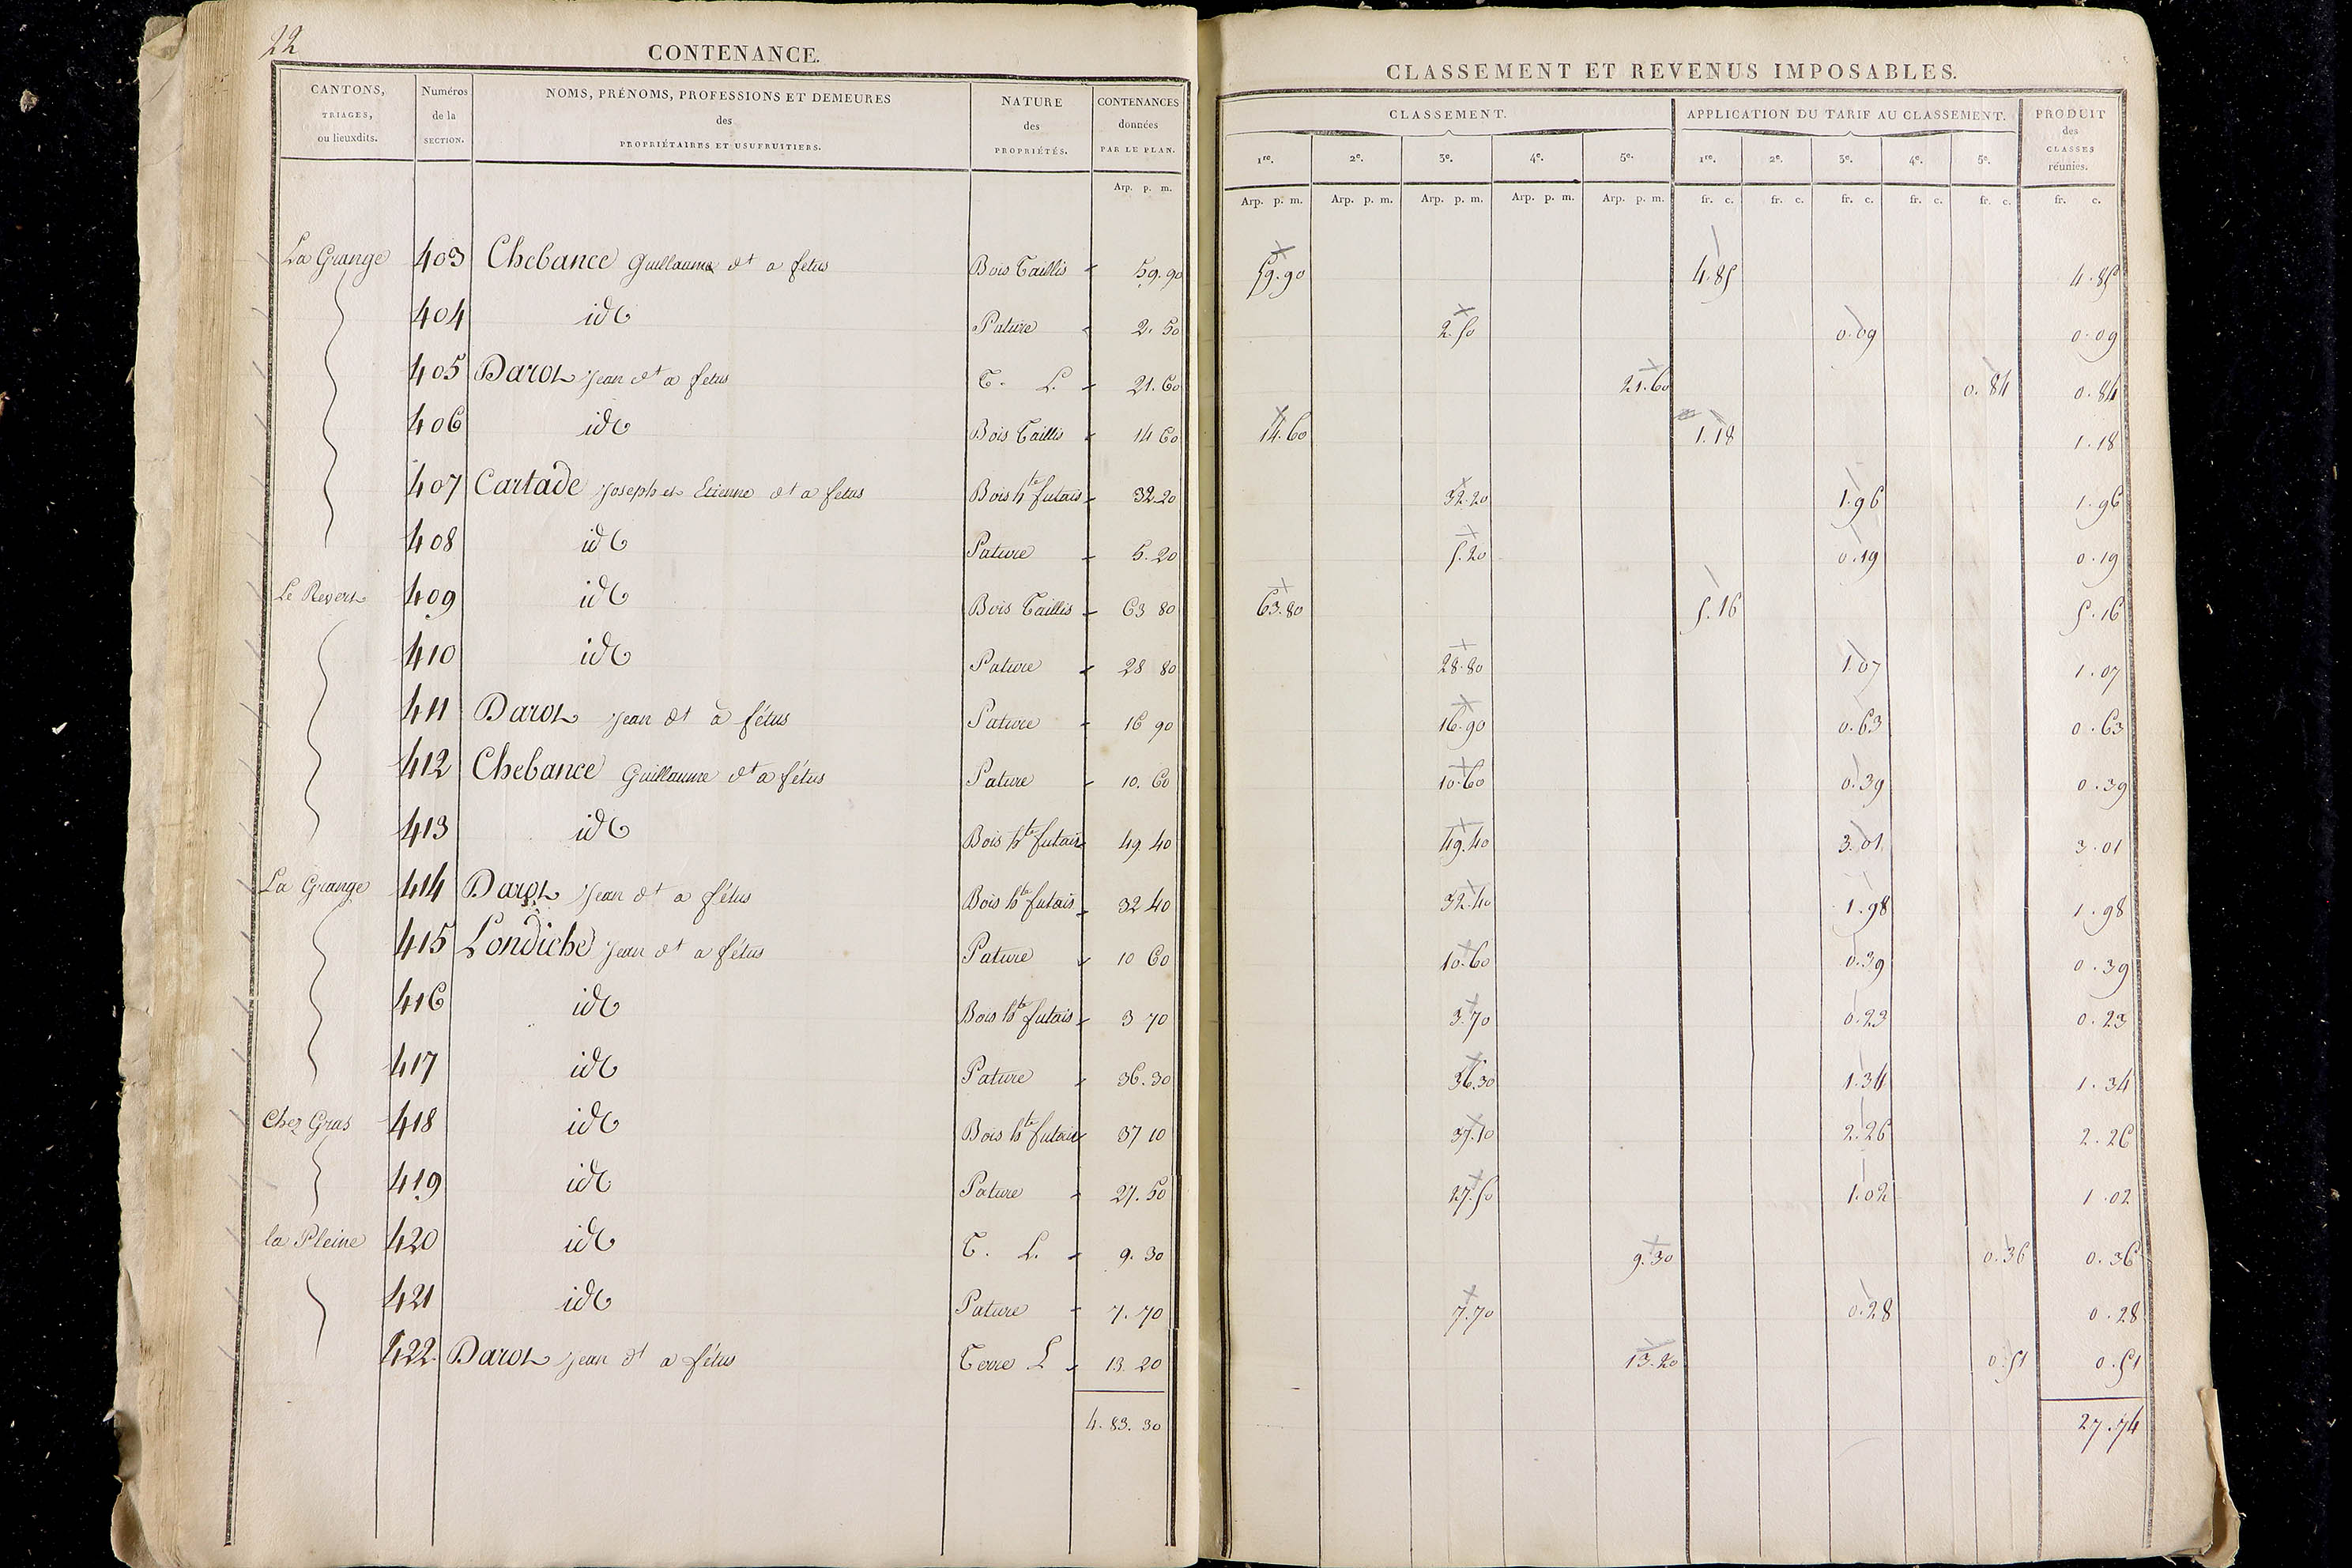 22
CONTENANCE.
CANTONS,
TRIAGES,
ou lieuxdits.
Numéros
de la
SECTION.
NOMS, PRÉNOMS, PROFESSIONS ET DEMEURES
des
PROPRIÉTAIRES ET USUFRUITIERS.
NATURE
des
PROPRIÉTÉS.
CONTENANCES
données
PAR LE PLAN.
Arp. p. m.
La Grange 403 Chebance Guillaume dt a fetus Bois Taillis 59.90
404 id Pature 2.50
405 Darot Jean dt a fetus T. L. 21.60
406 id Bois Taillis 14 60
407 Cartade Joseph et Etienne dt a fetus Bois hte futais 32.20
408 id Pature 5.20
Le Revert 409 id Bois Taillis 63 80
410 id Pature 28 80
411 Darot Jean dt à fétus Pature 16 90
412 Chebance Guillaume dt a fétus Pature 10.60
413 id Bois hte futais 49 40
La Grange 414 Darot Jean dt a fétus Bois hte futais 32 40
415 Londiche Jean dt a fétus Pature 10 60
416 id Bois hte futais 3 70
417 id Pature 36.30
Chez Gras 418 id Bois hte futais 37 10
419 id Pature 27.50
la Pleine 420 id T. L. 9.30
421 id Pature 7.70
422 Darot Jean dt a fétus Terre L 13.20
4.83.30
CLASSEMENT ET REVENUS IMPOSABLES.
CLASSEMENT.
APPLICATION DU TARIF AU CLASSEMENT.
PRODUIT
des
CLASSES
réunies.
1re. 2e. 3e. 4e. 5e. 1re. 2e. 3e. 4e. 5e.
Arp. p. m. Arp. p. m. Arp. p. m. Arp. p. m. Arp. p. m. fr. c. fr. c. fr. c. fr. c. fr. c. fr. c.
59.90 4.85 4.85
2.50 0.09 0.09
21.60 0.84 0.84
14.60 1.18 1.18
32.20 1.96 1.96
5.20 0.19 0.19
63.80 5.16 5.16
28.80 1.07 1.07
16.90 0.63 0.63
10.60 0.39 0.39
49.40 3.01 3.01
32.40 1.98 1.98
10.60 0.39 0.39
3.70 0.23 0.23
36.30 1.34 1.34
37.10 2.26 2.26
27.50 1.02 1.02
9.30 0.36 0.36
7.70 0.28 0.28
13.20 0.51 0.51
27.74